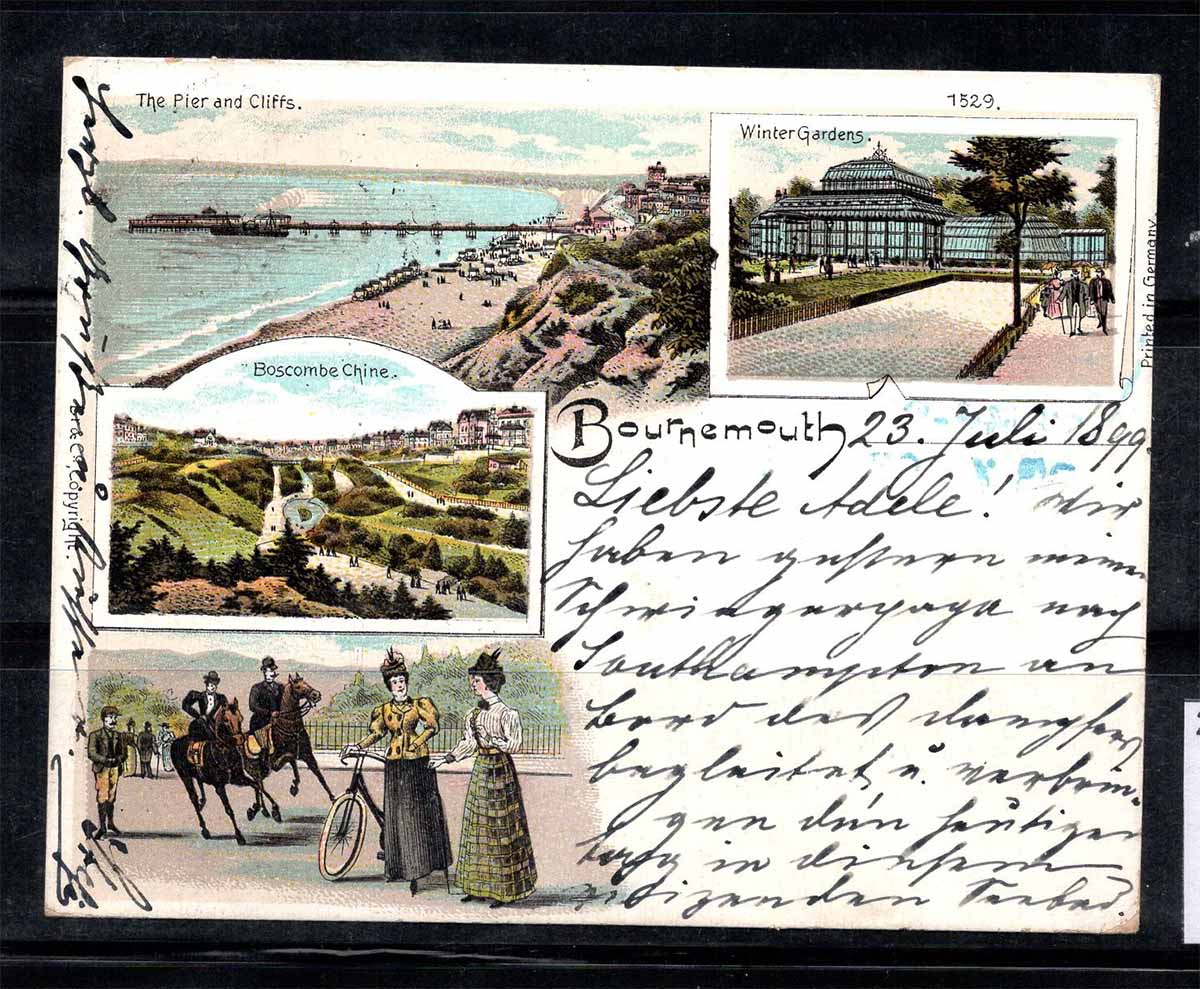 The Pier and Cliffs.
1529.
Winter Gardens.
Printed in Germany
Boscombe Chine.
Copyright.
Bournemouth 23. Juli 1899
Liebste Adele! Wir
haben gestern meinen
Schwiegerpapa nach
Southampton an
Bord des Dampfers
begleitet u. verbrin-
gen den heutigen
Tag in diesem
reizenden Seebad.
Herzl. Grüße u.